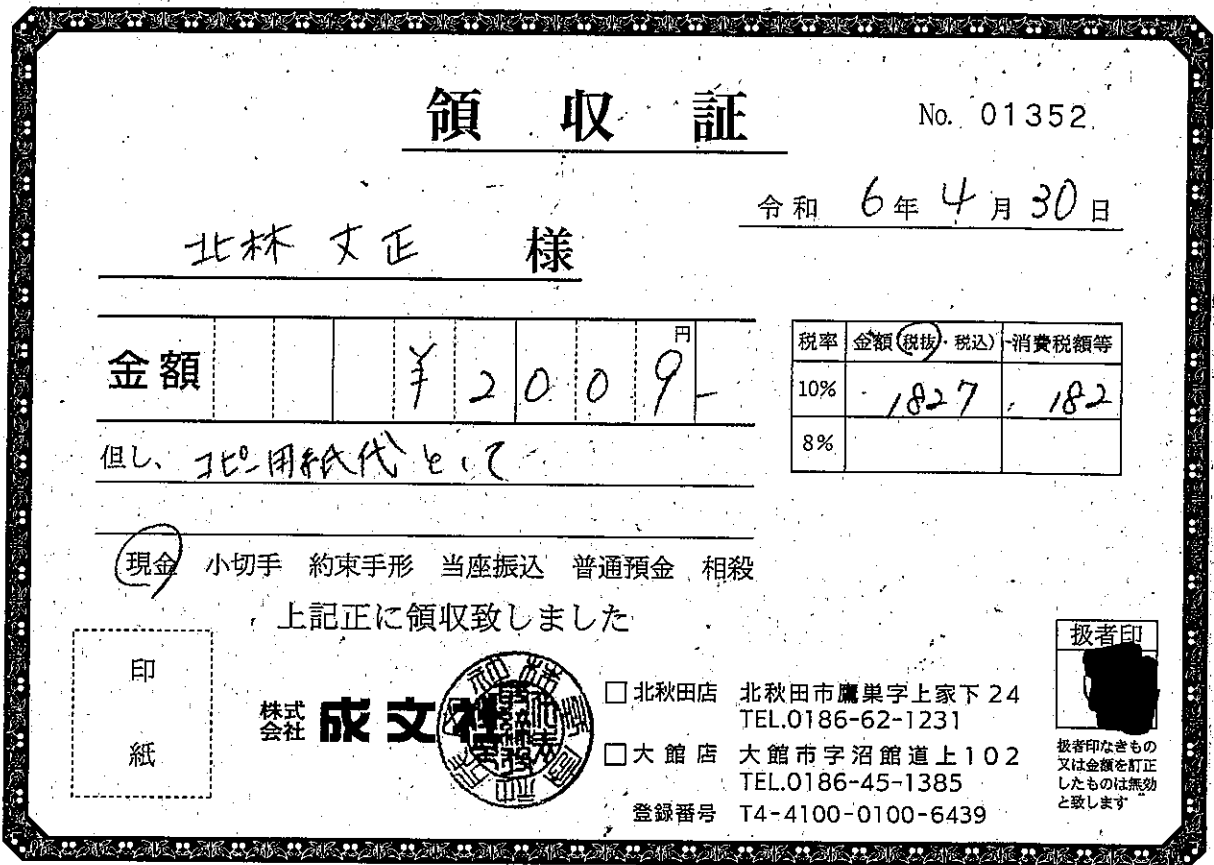 領収証
No. 01352
令和 6年 4月 30日
北林 丈正 様
金額 ¥2009円-
税率 金額(税抜・税込) 消費税額等
10% 1827 182
8%
但し、コピー用紙代として
現金 小切手 約束手形 当座振込 普通預金 相殺
上記正に領収致しました
印
紙
株式会社 成文社
□北秋田店 北秋田市鷹巣字上家下24
TEL.0186-62-1231
□大館店 大館市字沼館道上102
TEL.0186-45-1385
登録番号 T4-4100-0100-6439
扱者印
扱者印なきもの
又は金額を訂正
したものは無効
と致します